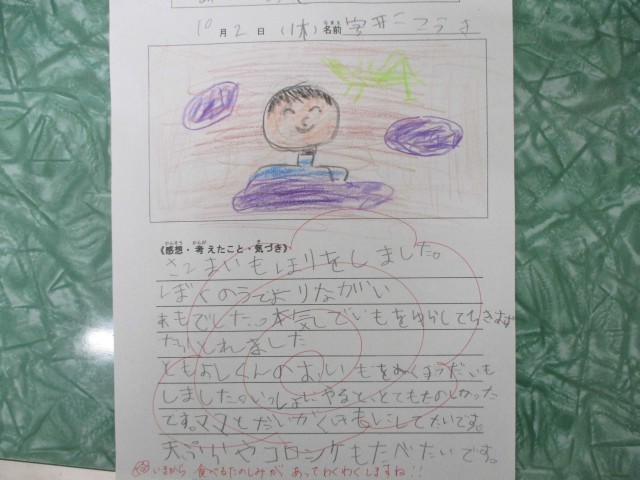 10月2日(木)名前 なまえ
《感想・考えたこと・気づき》 かんそう かんが き
さつまいもほりをしました。
ぼくのうでよりながい
いもでした。本気でいもを
たらとれました
くんの おいもを
しました。いっしょにやると、とてもたのしかった
です。ママとだいがくいもにしてたいです。
天ぷらやコロッケもたべたいです。
いまから 食べるたのしみが あってわくわくしますね!!